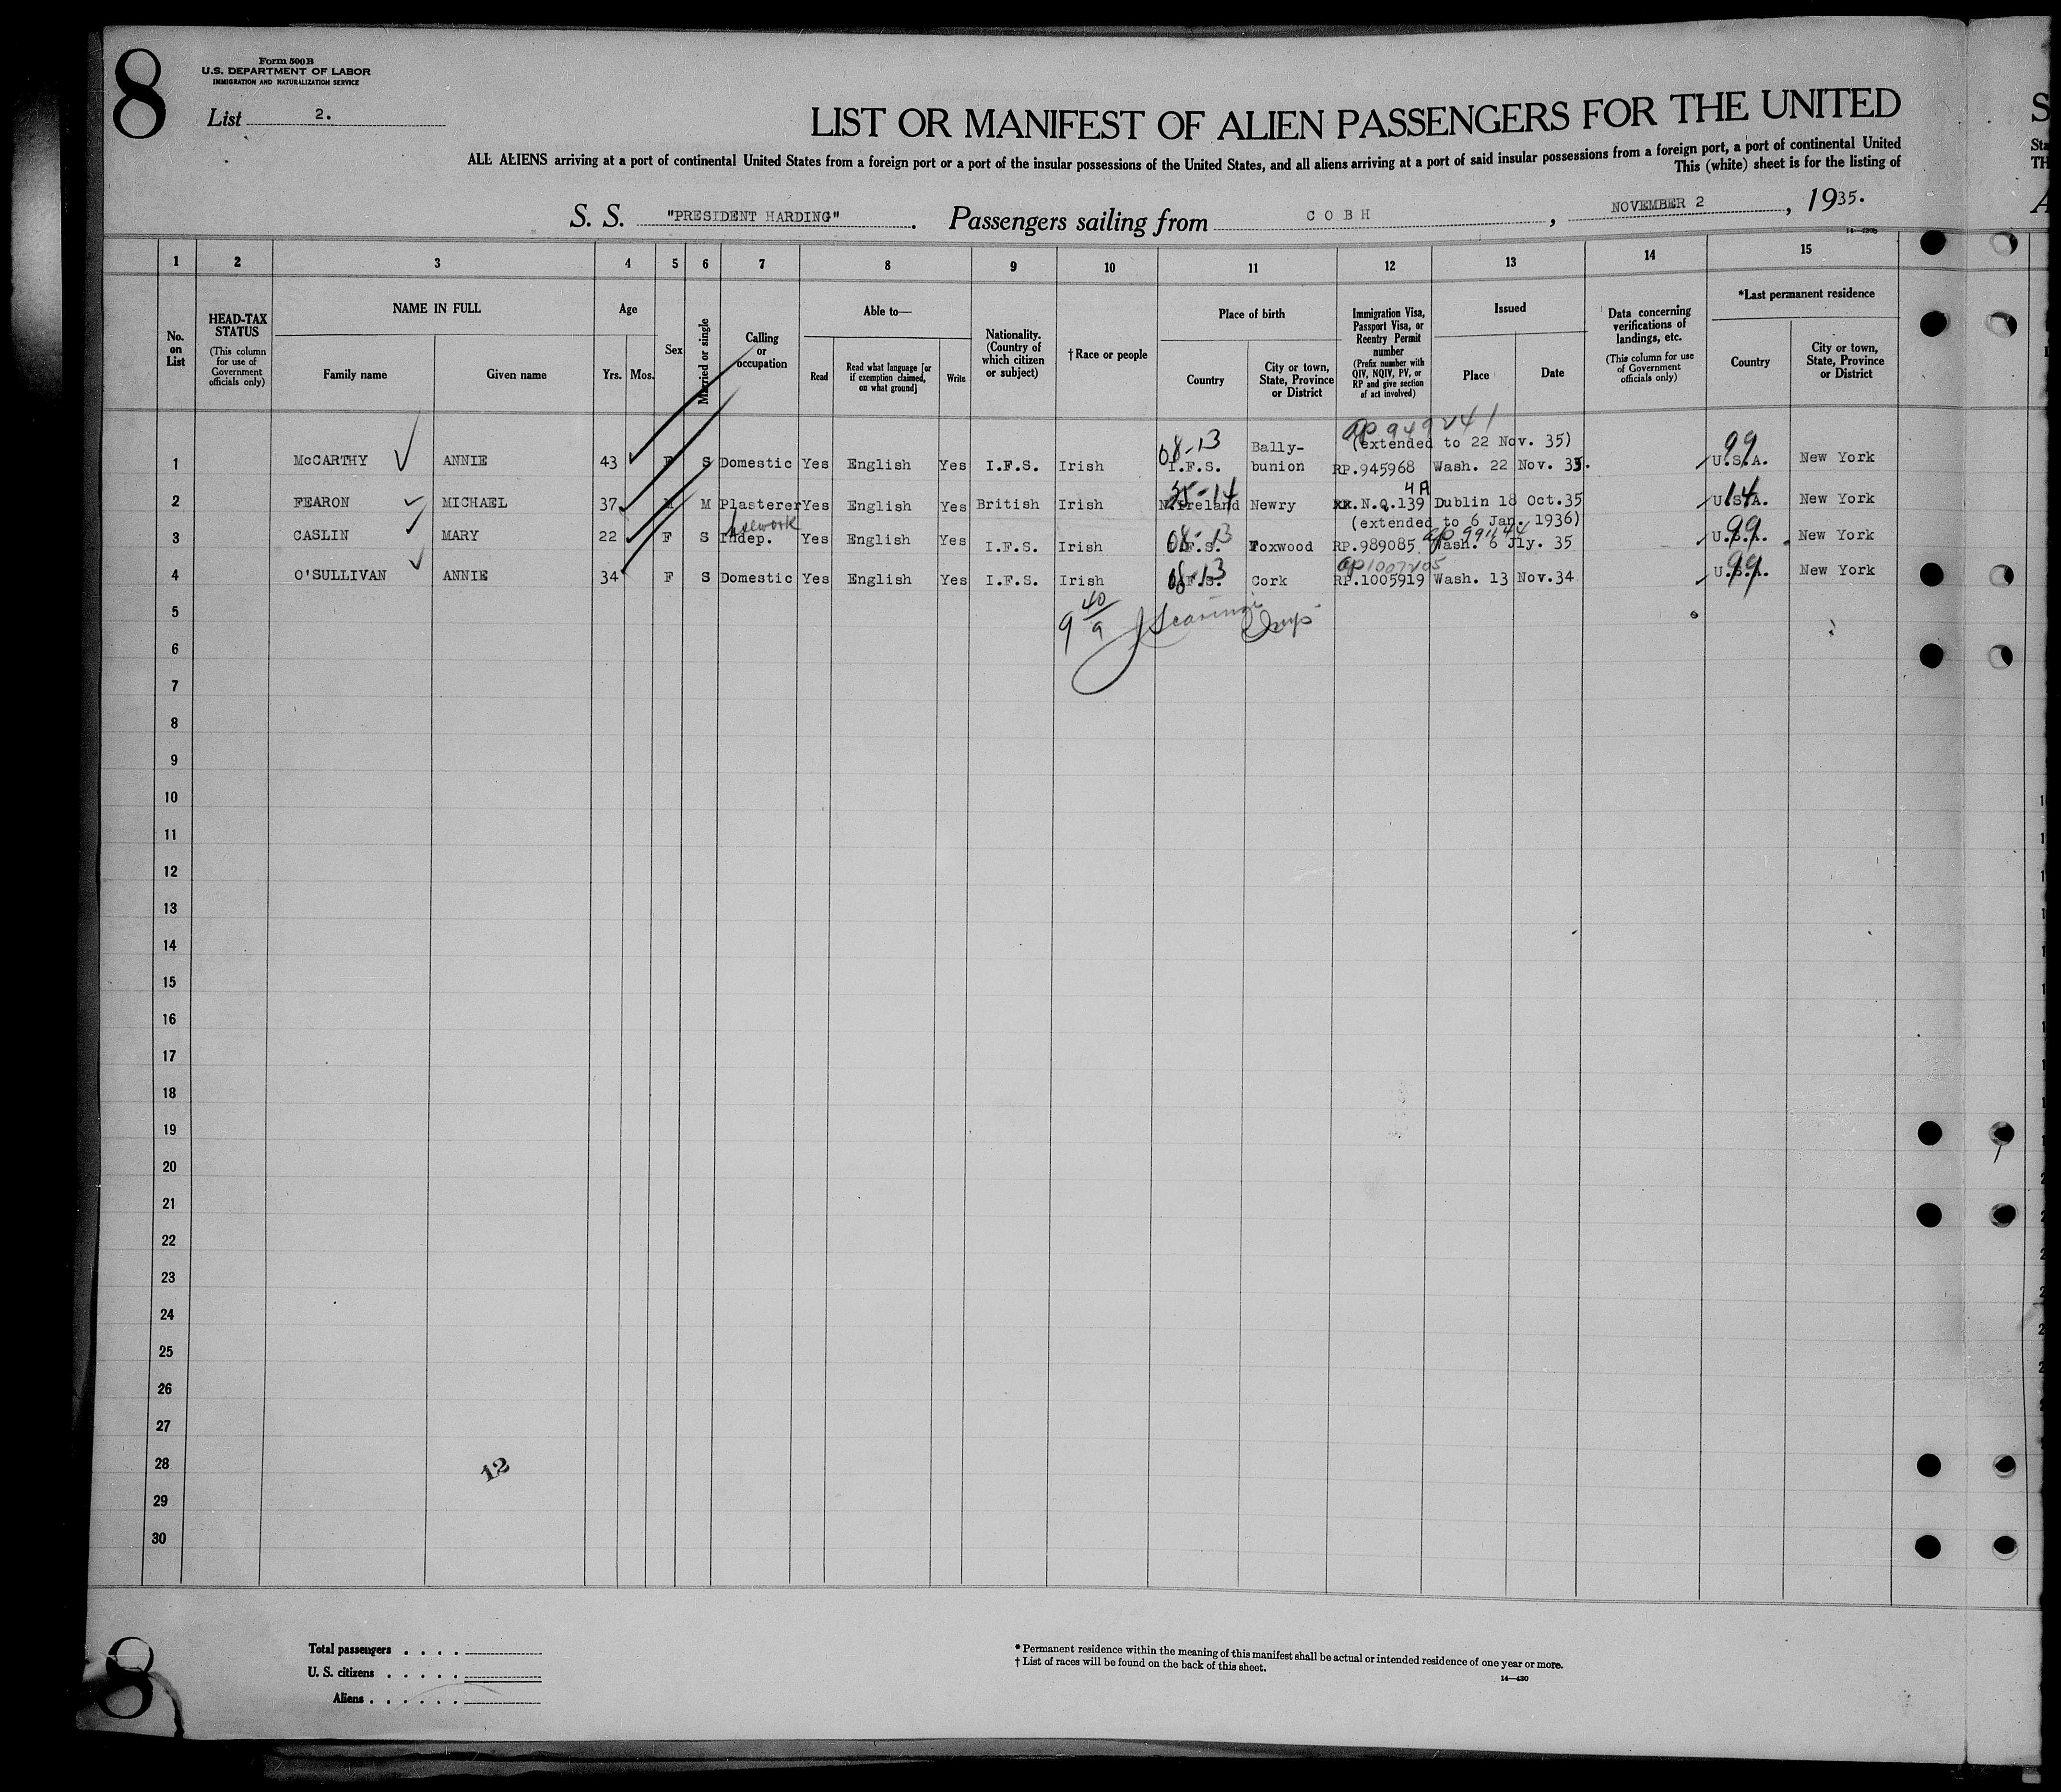 8
Form 500B
U.S. DEPARTMENT OF LABOR
IMMIGRATION AND NATURALIZATION SERVICE
List 2.
LIST OR MANIFEST OF ALIEN PASSENGERS FOR THE UNITED
ALL ALIENS arriving at a port of continental United States from a foreign port or a port of the insular possessions of the United States, and all aliens arriving at a port of said insular possessions from a foreign port, a port of continental United
This (white) sheet is for the listing of
S. S. "PRESIDENT HARDING". Passengers sailing from COBH, NOVEMBER 2, 1935.
1 2 3 4 5 6 7 8 9 10 11 12 13 14 15
No. on List
HEAD-TAX STATUS
(This column for use of Government officials only)
NAME IN FULL
Family name Given name
Age
Yrs. Mos.
Sex
Married or single
Calling or occupation
Able to—
Read Read what language [or if exemption claimed, on what ground] Write
Nationality. (Country of which citizen or subject)
†Race or people
Place of birth
Country City or town, State, Province or District
Immigration Visa, Passport Visa, or Reentry Permit number
(Prefix number with QIV, NQIV, PV, or RP and give section of act involved)
Issued
Place Date
Data concerning verifications of landings, etc.
(This column for use of Government officials only)
*Last permanent residence
Country City or town, State, Province or District
08-13 Bally- (extended to 22 Nov. 35) 99
1 McCARTHY ANNIE 43 F S Domestic Yes English Yes I.F.S. Irish I.F.S. bunion RP.945968 Wash. 22 Nov. 33. U.S.A. New York
4A
2 FEARON MICHAEL 37 M M Plasterer Yes English Yes British Irish N.Ireland Newry N.Q.139 Dublin 18 Oct.35 U.S.A. 14 New York
(extended to 6 Jan. 1936)
3 CASLIN MARY 22 F S Indep. Yes English Yes I.F.S. Irish I.F.S. 08-13 Foxwood RP.989085 Wash. 6 Jly. 35 U.S.A. 99 New York
4 O'SULLIVAN ANNIE 34 F S Domestic Yes English Yes I.F.S. Irish I.F.S. 08-13 Cork RP.1005919 Wash. 13 Nov.34 U.S.A. 99 New York
5
6
7
8
9
10
11
12
13
14
15
16
17
18
19
20
21
22
23
24
25
26
27
28
12
29
30
Total passengers
U. S. citizens
Aliens
* Permanent residence within the meaning of this manifest shall be actual or intended residence of one year or more.
† List of races will be found on the back of this sheet.
14—430
8